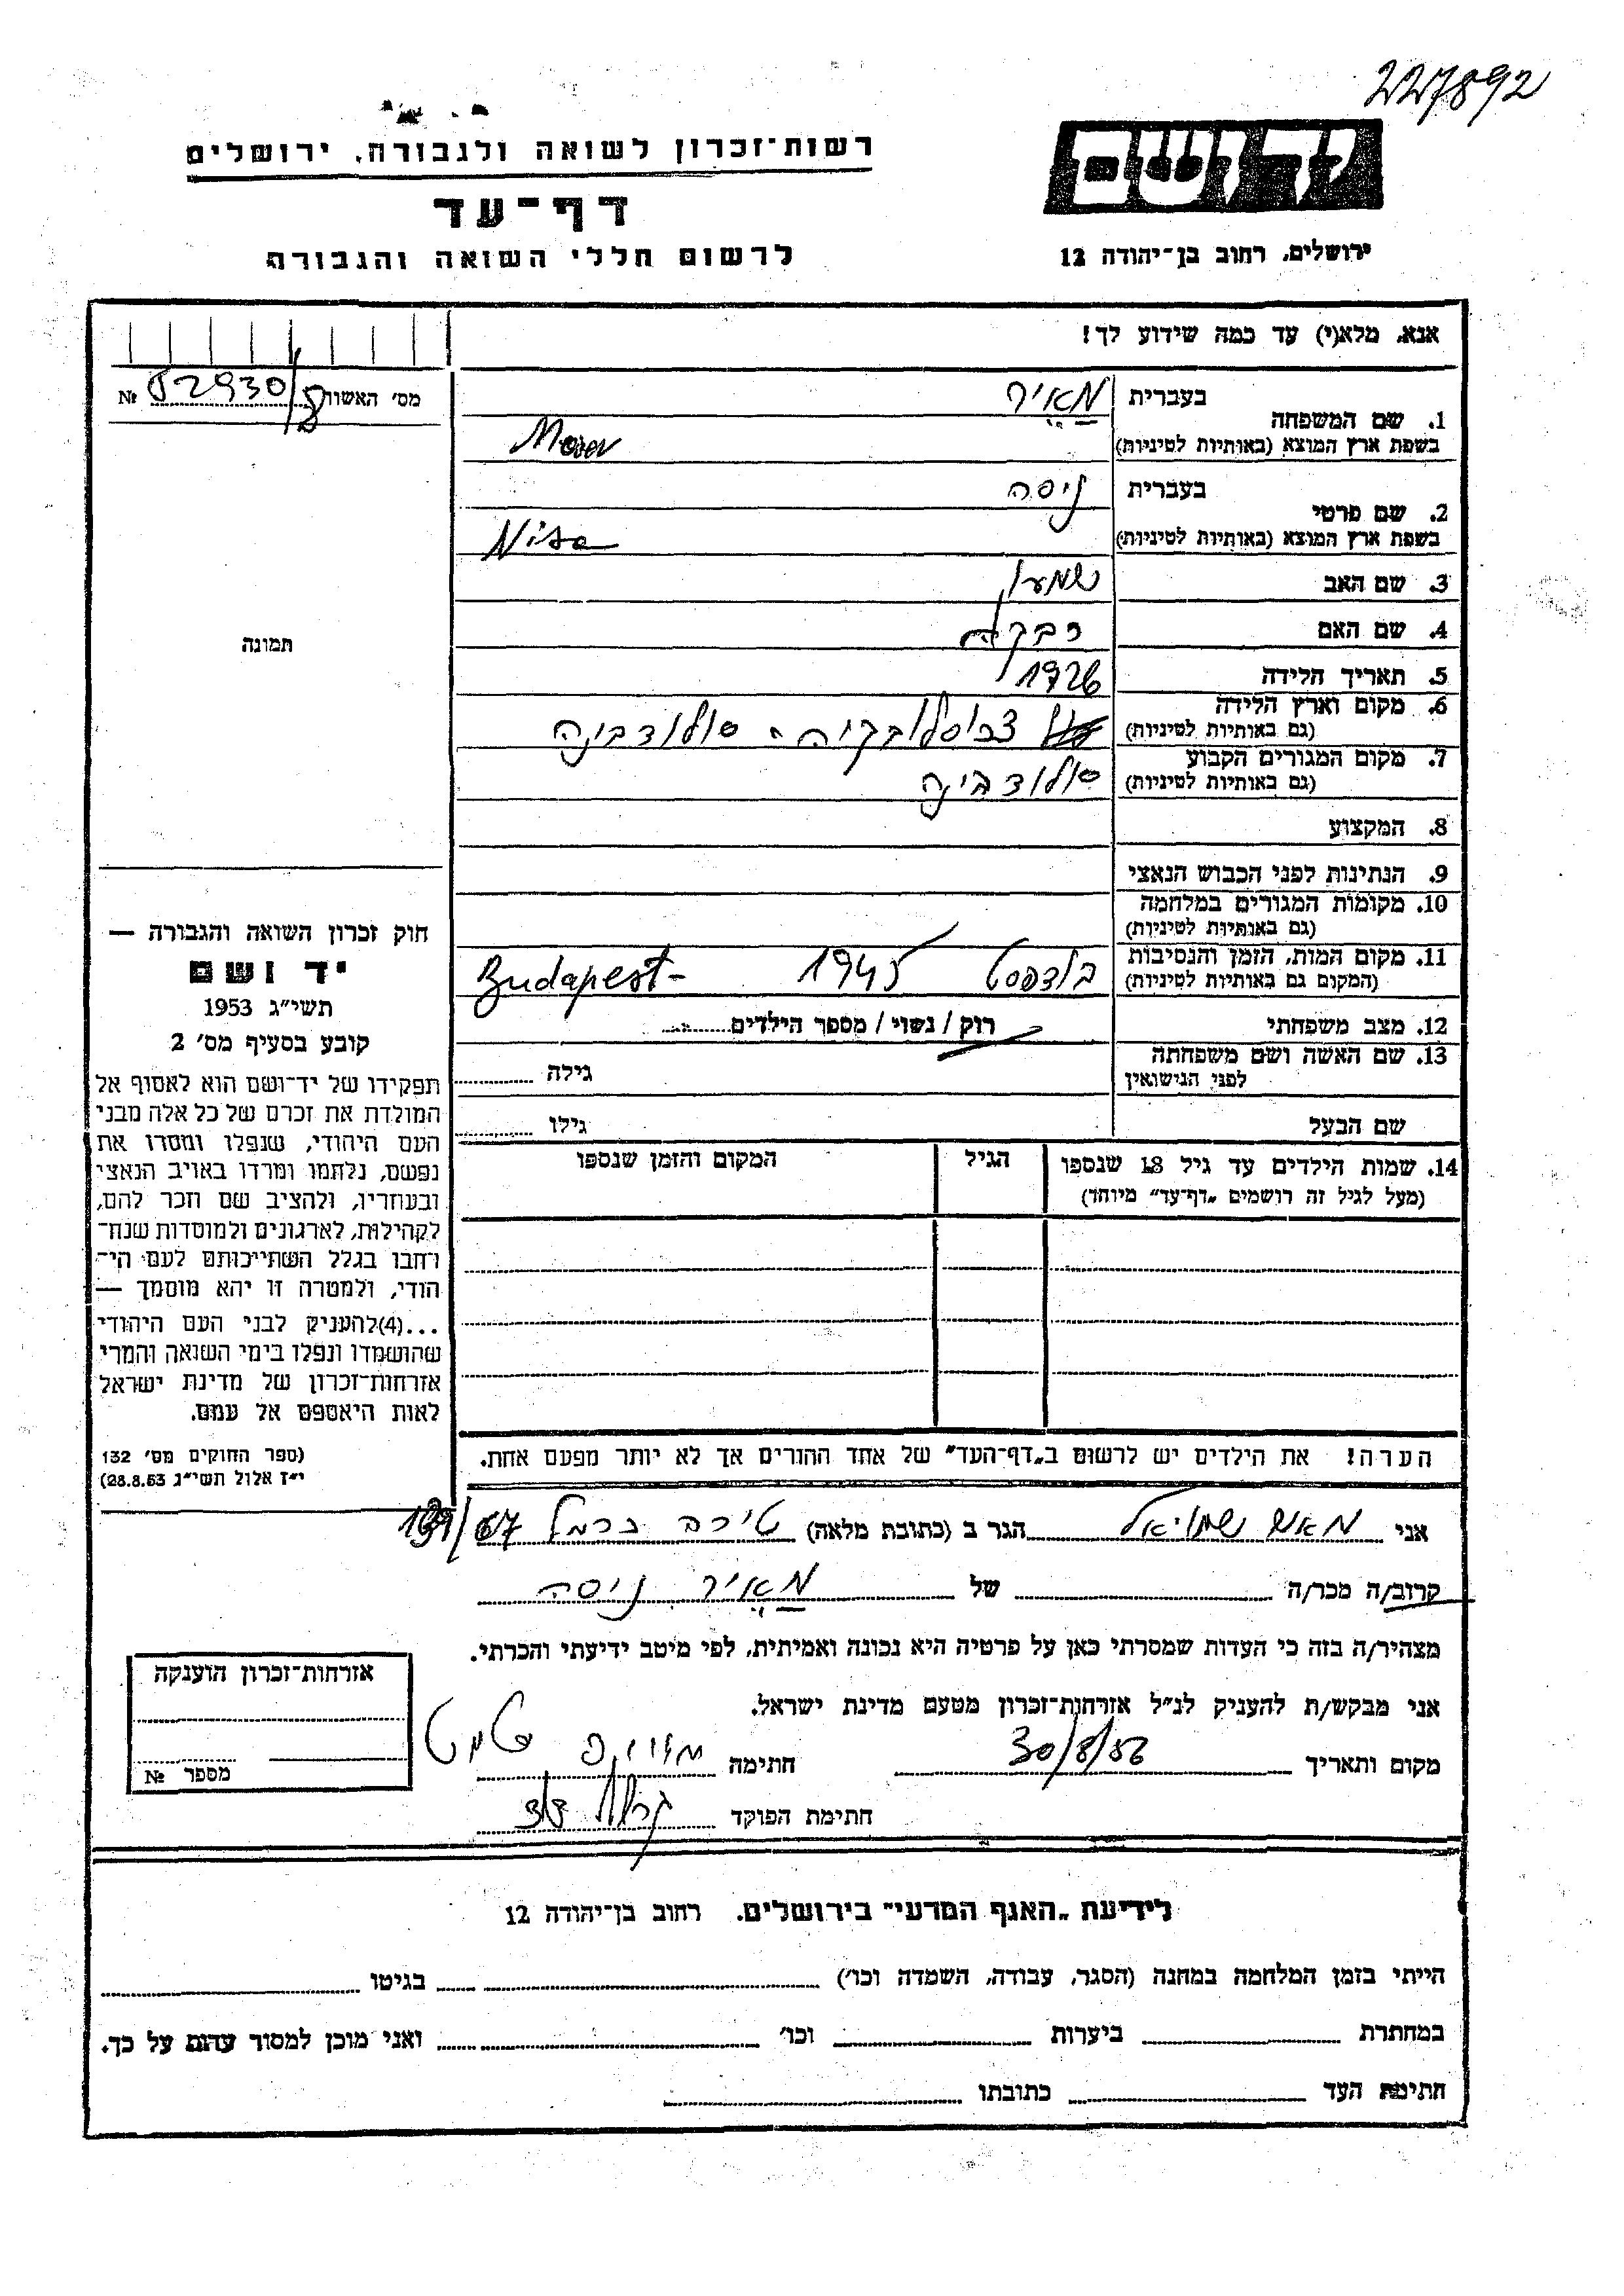 227892
רשות־זכרון לשואה ולגבורה, ירושלים
יד ושם
דף־עד
לרשום חללי השואה והגבורה
ירושלים, רחוב בן־יהודה 12
אנא, מלא(י) עד כמה שידוע לך!
מס' האשור
№ 52930/
1. שם המשפחה
בעברית מאיר
בשפת ארץ המוצא (באותיות לטיניות)
2. שם פרטי
בעברית ניסה
בשפת ארץ המוצא (באותיות לטיניות) Nisa
3. שם האב שמעון
4. שם האם רבקה
5. תאריך הלידה 1926
6. מקום וארץ הלידה
(גם באותיות לטיניות) צכוסלובקיה - סולודבינה
7. מקום המגורים הקבוע
(גם באותיות לטיניות) סולודבינה
8. המקצוע
9. הנתינות לפני הכבוש הנאצי
10. מקומות המגורים במלחמה
(גם באותיות לטיניות)
11. מקום המות, הזמן והנסיבות
(המקום גם באותיות לטיניות) בודפסט 1945 Budapest-
12. מצב משפחתי רוק / נשוי / מספר הילדים
13. שם האשה ושם משפחתה
לפני הנישואין גילה
שם הבעל גילו
14. שמות הילדים עד גיל 18 שנספו הגיל המקום והזמן שנספו
(מעל לגיל זה רושמים „דף־עד" מיוחד)
הערה! את הילדים יש לרשום ב„דף־העד" של אחד ההורים אך לא יותר מפעם אחת.
תמונה
חוק זכרון השואה והגבורה —
יד ושם
תשי"ג 1953
קובע בסעיף מס' 2
תפקידו של יד־ושם הוא לאסוף אל
המולדת את זכרם של כל אלה מבני
העם היהודי, שנפלו ומסרו את
נפשם, נלחמו ומרדו באויב הנאצי
ובעוזריו, ולהציב שם וזכר להם,
לקהילות, לארגונים ולמוסדות שנח־
רבו בגלל השתייכותם לעם הי־
הודי, ולמטרה זו יהא מוסמך —
...(4)להעניק לבני העם היהודי
שהושמדו ונפלו בימי השואה והמרי
אזרחות־זכרון של מדינת ישראל
לאות היאספם אל עמם.
(ספר החוקים מס' 132
י"ז אלול תשי"ג 28.8.53)
אני הגר ב (כתובת מלאה) טירה כרמל
קרוב/ה מכר/ה של מאיר ניסה
מצהיר/ה בזה כי העדות שמסרתי כאן על פרטיה היא נכונה ואמיתית, לפי מיטב ידיעתי והכרתי.
אני מבקש/ת להעניק לנ"ל אזרחות־זכרון מטעם מדינת ישראל.
מקום ותאריך 30/8/56 חתימה
חתימת הפוקד
אזרחות־זכרון הוענקה
מספר №
לידיעת „האגף המדעי" בירושלים, רחוב בן־יהודה 12
הייתי בזמן המלחמה במחנה (הסגר, עבודה, השמדה וכו') בגיטו
במחתרת ביערות וכו' ואני מוכן למסור עדות על כך.
חתימת העד כתובתו